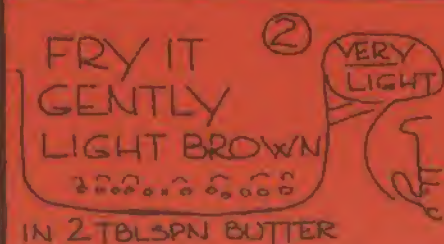 ②
FRY IT
GENTLY
LIGHT BROWN
VERY
LIGHT
IN 2 TBLSPN BUTTER